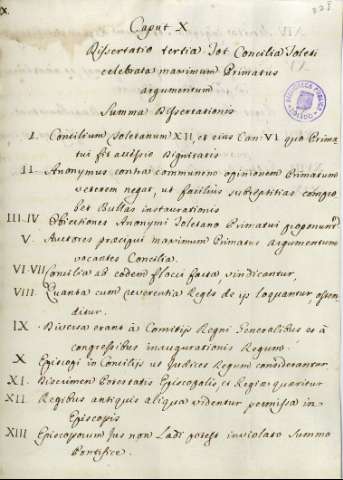 X.
328
Caput X
Dissertatio tertia Tot Concilia Toleti
celebrata maximum Primatus
argumentum
Summa Dissertationis
I. Concilium Toletanum XII, et eius Can. VI quo Prima-
tui fit accessio Dignitatis
II. Anonymus contra communem opinionem Primatum
veterem negat, ut facilius subreptitias compro-
bet Bullas instaurationis
III.IV Obiectiones Anonymi Toletano Primatui proponunt.r
V. Auctores praecipui maximum Primatus argumentum
vocantes Concilia.
VI.VII Concilia ab eodem flocci facta, vindicantur,
VIII. Quanta cum reverentia Reges de ijs loquantur, osten-
ditur.
IX. Diversa erant à Comitijs Regni Generalibus et à
congressibus inaugurationis Regum.
X Episcopi in Concilijs ut Judices Regum considerantur.
XI. Discrimen Potestatis Episcopalis, et Regiae quaeritur
XII. Regibus antiquis aliqua videntur permissa in
Episcopis
XIII Episcoporum Jus non Ladi potest inviolato Summo
Pontifice.
BIBLIOTECA PUBLICA
TOLEDO